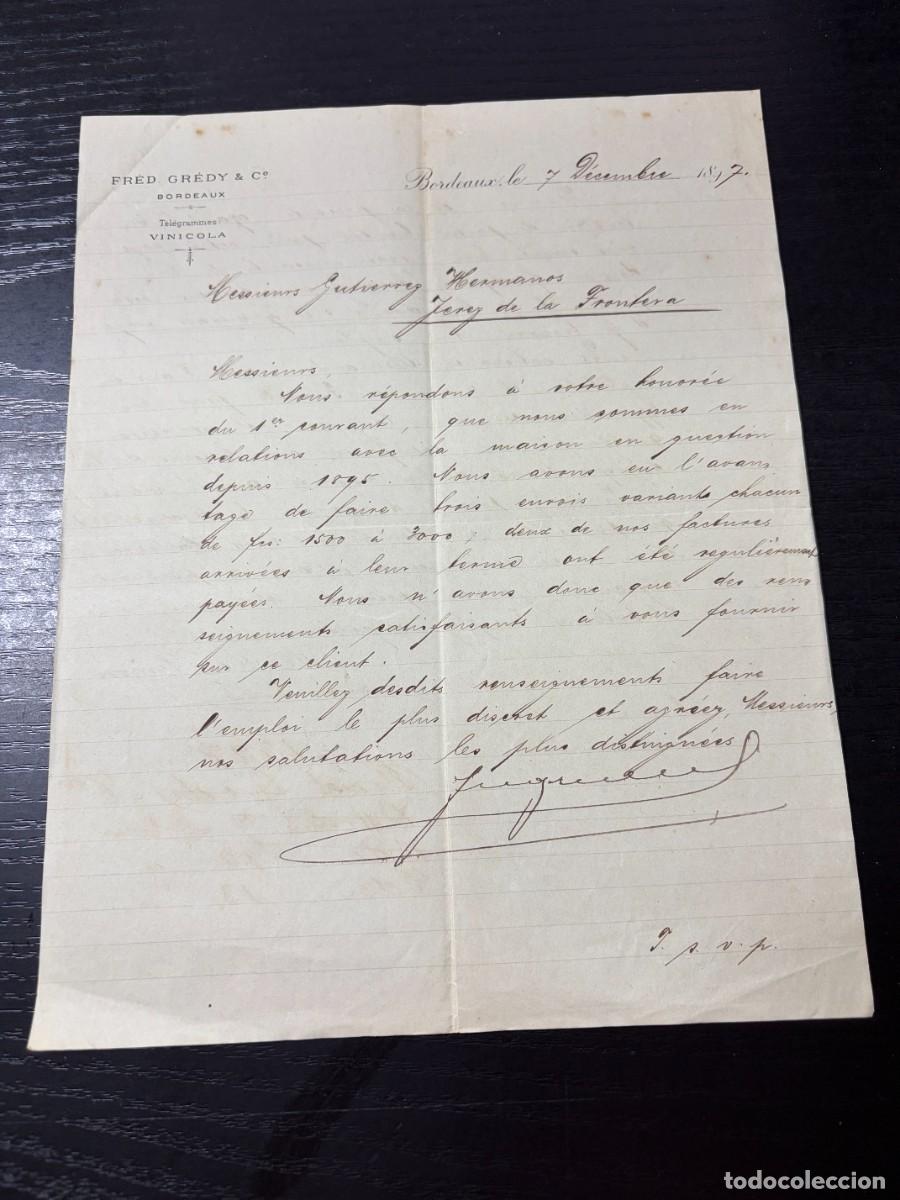 FRÉD. GRÉDY & Cº
BORDEAUX
Télégrammes
VINICOLA
Bordeaux, le 7 Décembre 1897.
Messieurs Gutierrez Hermanos
Jerez de la Frontera
Messieurs,
Nous répondons à votre honorée
du 1er courant, que nous sommes en
relations avec la maison en question
depuis 1895. Nous avons eu l'avan
tage de faire trois envois variant chacun
de frs: 1500 à 2000; deux de nos factures
arrivées à leur terme ont été regulièrement
payées. Nous n'avons donc que des ren
seignements satisfaisants à vous fournir
sur ce client.
Veuillez desdits renseignements faire
l'emploi le plus discret et agréez, Messieurs,
nos salutations les plus distinguées
T. s. v. p.
todocoleccion